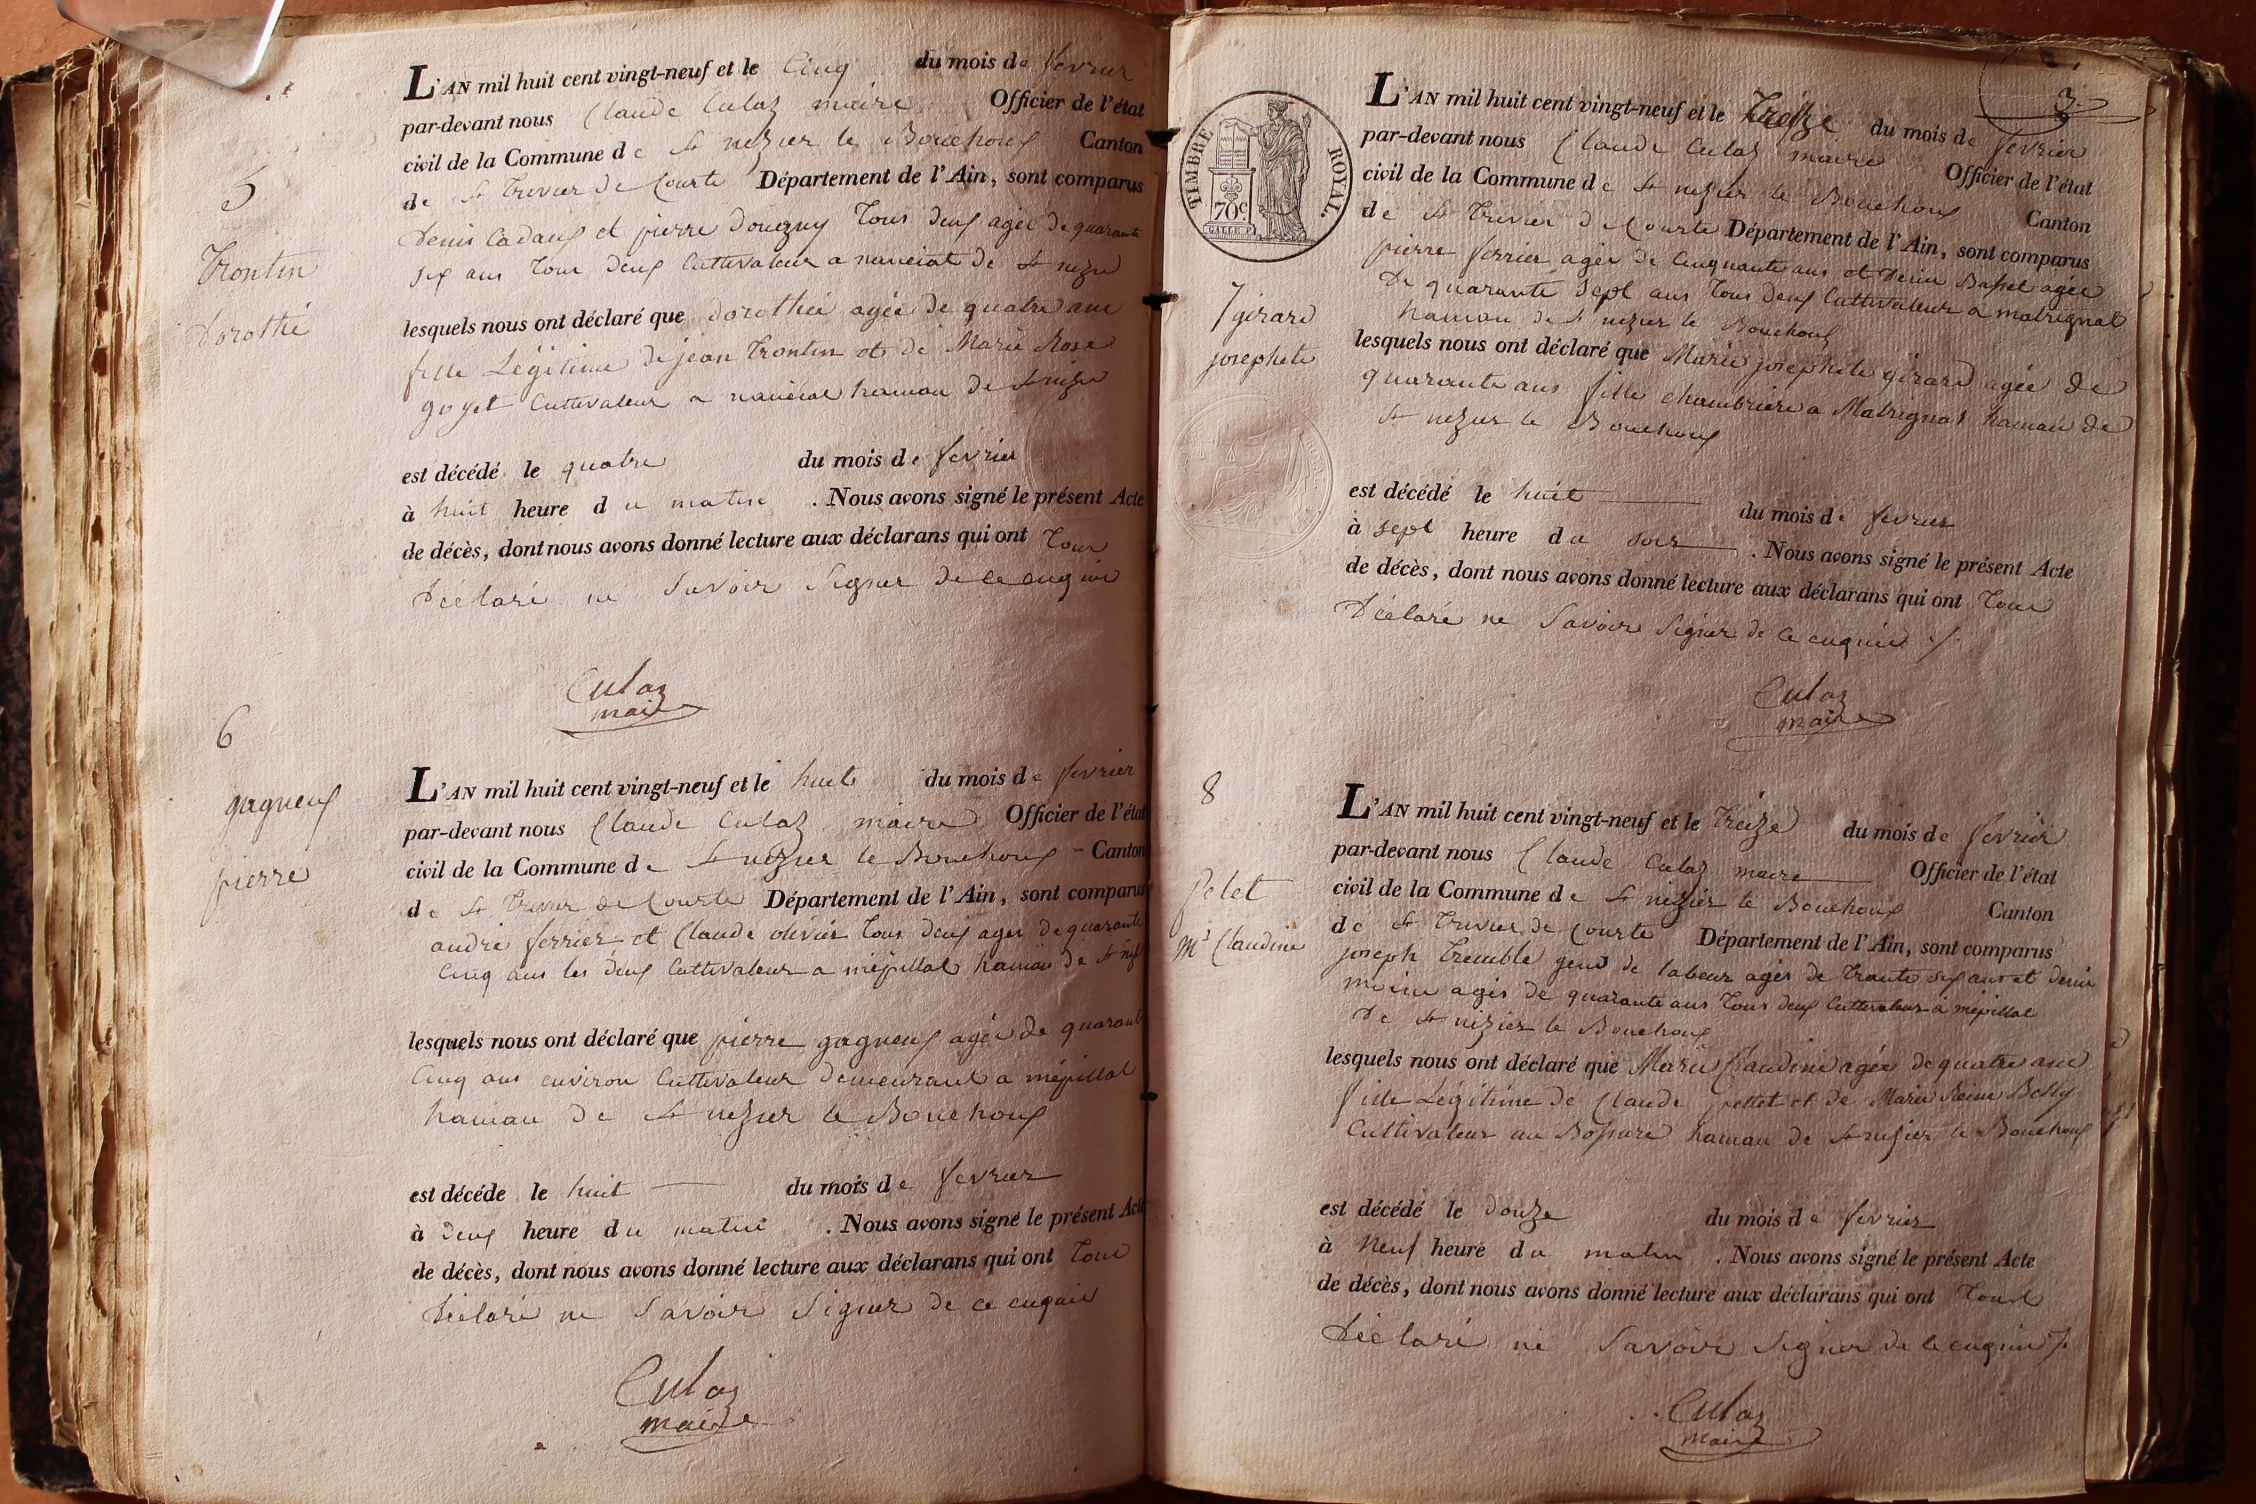 5
Trontin
Dorothé
L'AN mil huit cent vingt-neuf et le Cinq du mois de fevrier
par-devant nous Claude Culaz maire Officier de l'état
civil de la Commune de St nezier le Bouchoux Canton
de St Trivier de Courte Département de l'Ain, sont comparus
Denis Cadaux et pierre Tous deux agée de quarante
six ans Tous deux Cultivateur a de St nezier
lesquels nous ont déclaré que dorothée agée de quatre ans
fille Légitime de jean Trontin et de Marie Rose
goyet Cultivateur a hamau de St nizier
est décédé le quatre du mois de fevrier
à huit heure du matin . Nous avons signé le présent Acte
de décès, dont nous avons donné lecture aux déclarans qui ont Tous
Déclaré ne Savoir Signer de ce enquis
Culaz
maire
6
gagneux
pierre
L'AN mil huit cent vingt-neuf et le huit du mois de fevrier
par-devant nous Claude Culaz maire Officier de l'état
civil de la Commune de St nezier le Bouchoux - Canton
de St Trivier de Courte Département de l'Ain, sont comparus
andré ferrier et Claude olivier Tous deux ager de quarante
Cinq ans les deux Cultivateur a mépillat hamau de St
lesquels nous ont déclaré que pierre gagneux agée de quarante
Cinq ans environ Cultivateur demeurant a mépillat
hamau de St nezier le Bouchoux
est décéde le huit du mois de fevrier
à deux heure du matin . Nous avons signé le présent Acte
de décès, dont nous avons donné lecture aux déclarans qui ont Tous
Déclaré ne Savoir Signer de ce enquis
Culaz
maire
3
TIMBRE ROYAL.
70c.
7 girard
josephete
L'AN mil huit cent vingt-neuf et le Treize du mois de fevrier
par-devant nous Claude Culaz maire Officier de l'état
civil de la Commune de St nezier le Bouchoux Canton
de St Trivier de Courte Département de l'Ain, sont comparus
pierre ferrier agée de Cinquante ans et denis Basset agée
de quarante Sept ans Tous deux Cultivateur a matrignat
hamau de St nezier le Bouchoux
lesquels nous ont déclaré que Marie josephete girard agée de
quarante ans fille chambriere a Matrignat hamau de
St nezier le Bouchoux
est décédé le huit du mois de fevrier
à sept heure du soir . Nous avons signé le présent Acte
de décès, dont nous avons donné lecture aux déclarans qui ont Tous
Déclaré ne Savoir Signer de ce enquis
Culaz
maire
8
Pelet
Mie Claudine
L'AN mil huit cent vingt-neuf et le Treize du mois de fevrier
par-devant nous Claude Culaz maire Officier de l'état
civil de la Commune de St nezier le Bouchoux Canton
de St Trivier de Courte Département de l'Ain, sont comparus
joseph Tremble de labeur agés de Trante six ans et denis
moine agés de quarante ans Tous deux Cultivateur a mépillat
de St nizier le Bouchoux
lesquels nous ont déclaré que Marie Claudine agée de quatre ans
fille Légitime de Claude pettet et de Marie Reine
Cultivateur au hamau de St nezier le Bouchoux
est décédé le douze du mois de fevrier
à Neuf heure du matin . Nous avons signé le présent Acte
de décès, dont nous avons donné lecture aux déclarans qui ont Tous
Déclaré ne Savoir Signer de ce enquis
Culaz
maire